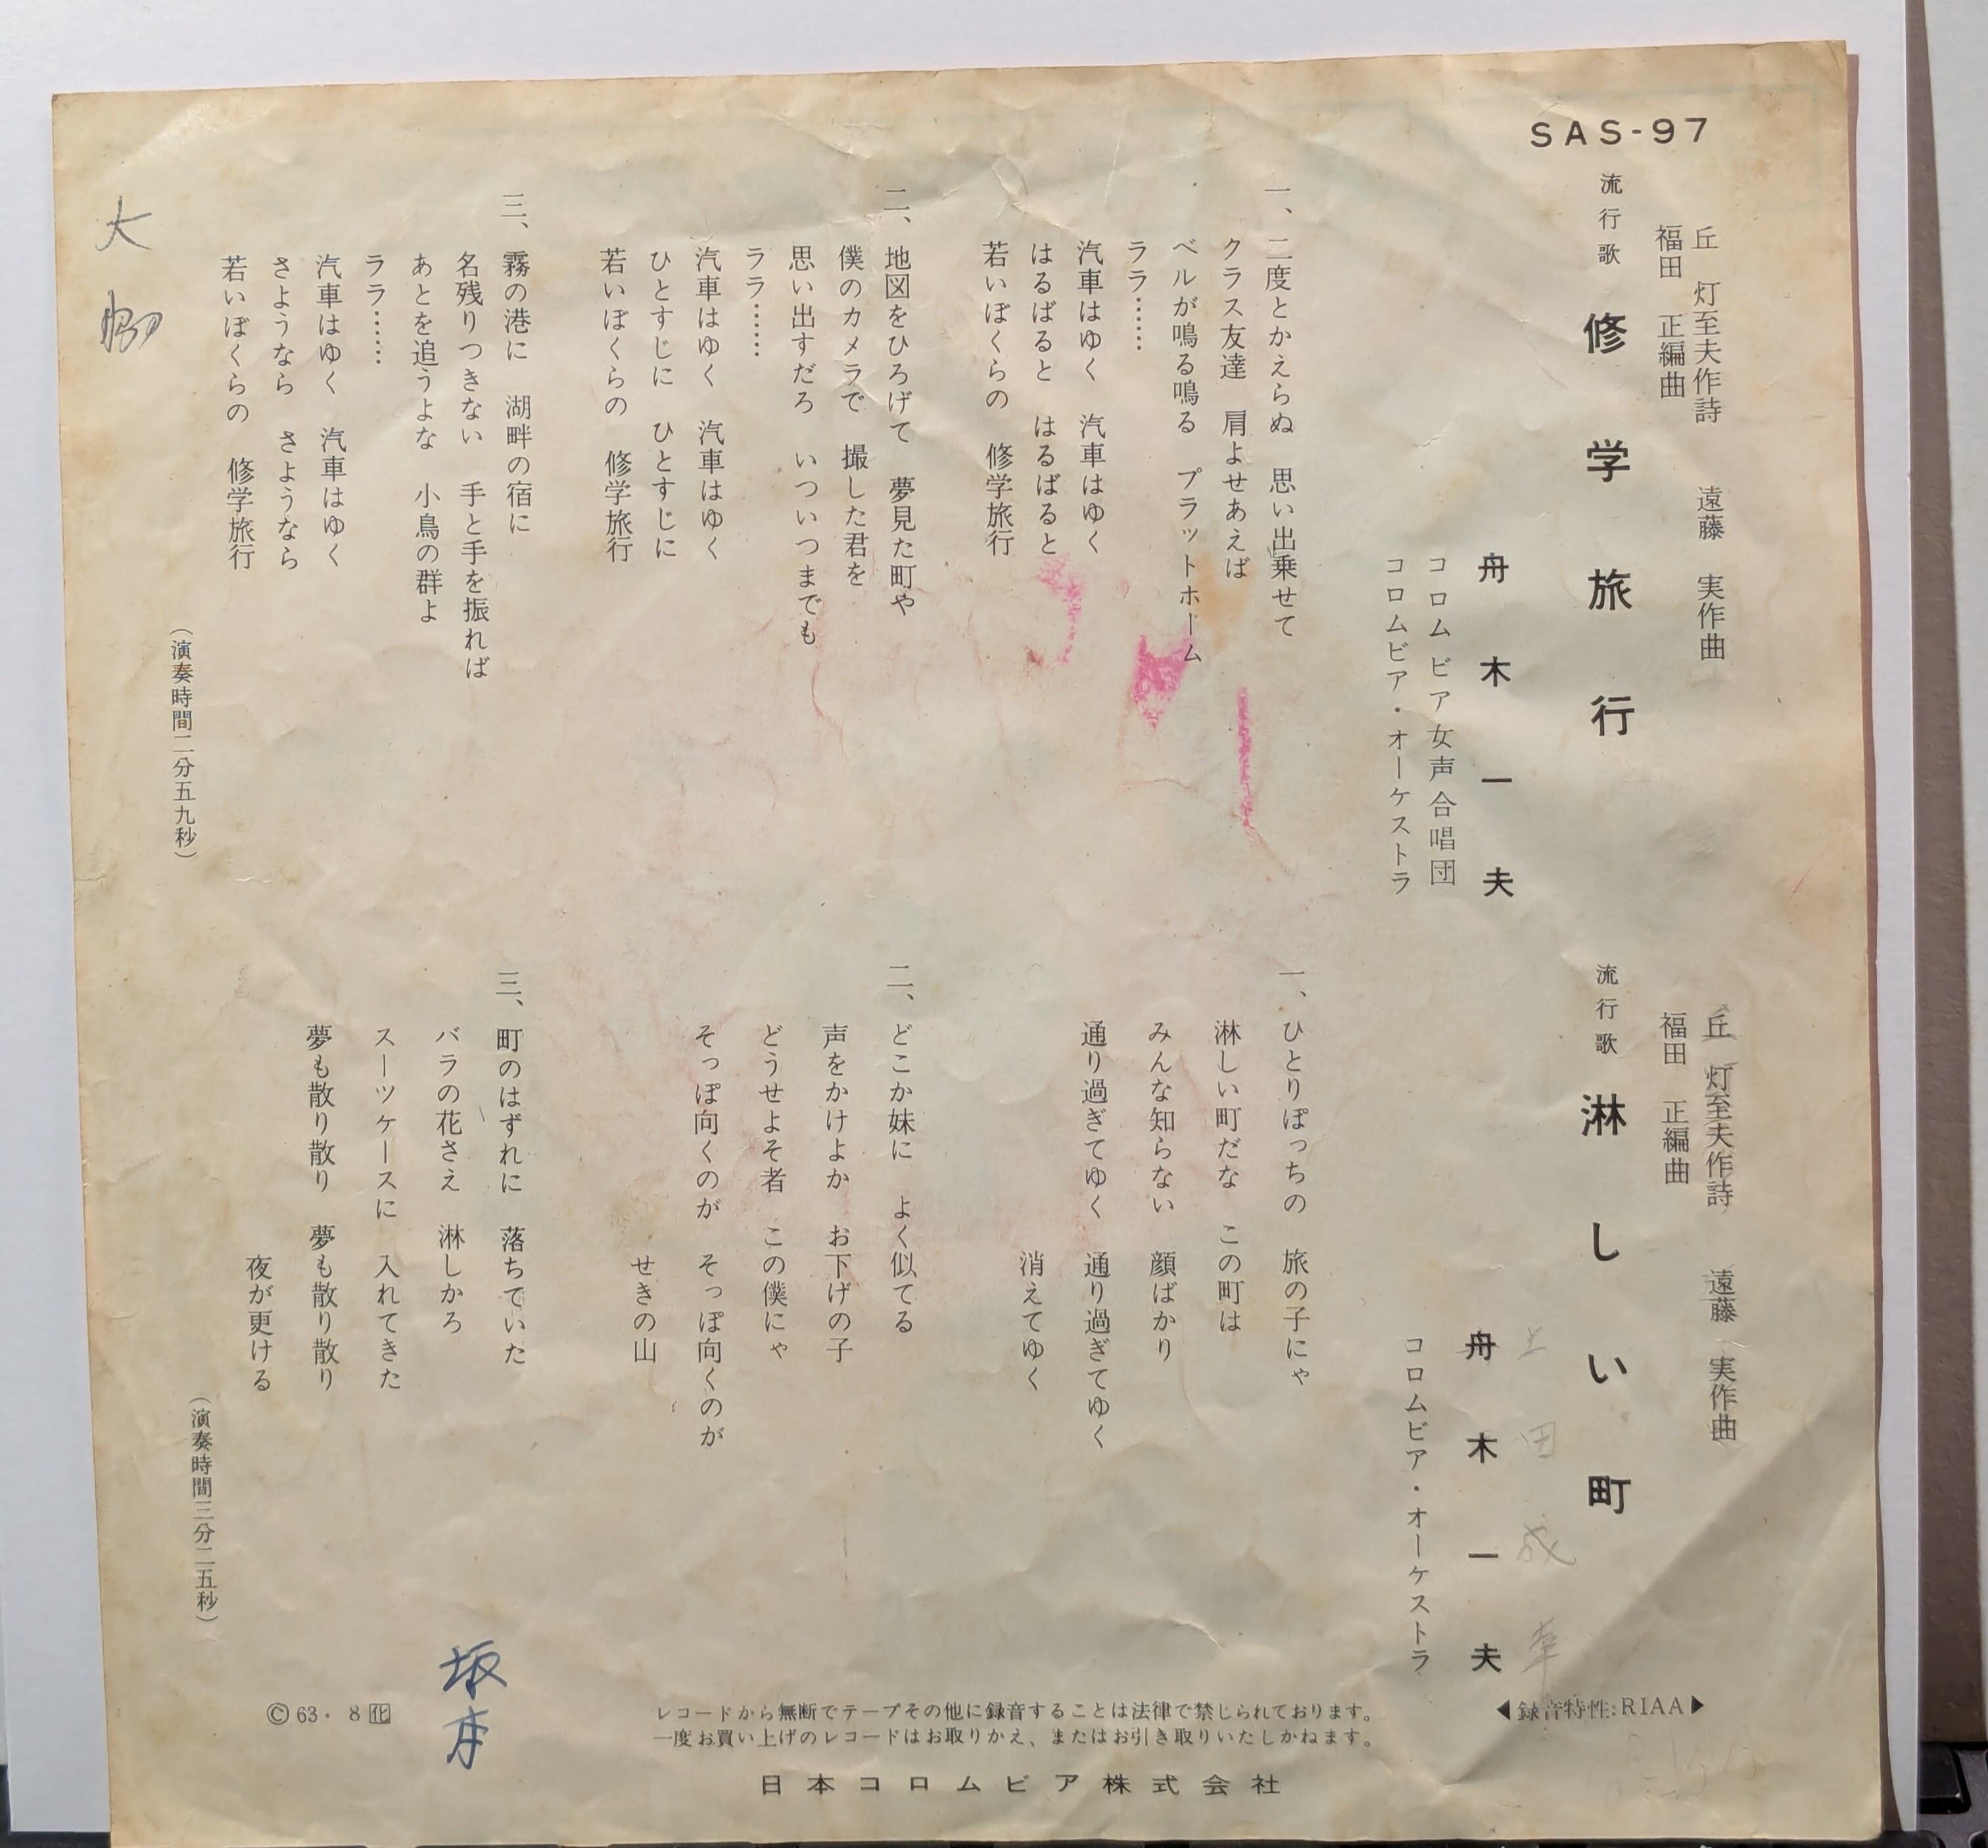 SAS-97
丘　灯至夫作詩　遠藤　実作曲
福田　正編曲
流行歌　修学旅行
舟木一夫
コロムビア女声合唱団
コロムビア・オーケストラ
一、二度とかえらぬ　思い出乗せて
クラス友達　肩よせあえば
ベルが鳴る鳴る　プラットホーム
ララ……
汽車はゆく　汽車はゆく
はるばると　はるばると
若いぼくらの　修学旅行
二、地図をひろげて　夢見た町や
僕のカメラで　撮した君を
思い出すだろ　いついつまでも
ララ……
汽車はゆく　汽車はゆく
ひとすじに　ひとすじに
若いぼくらの　修学旅行
三、霧の港に　湖畔の宿に
名残りつきない　手と手を振れば
あとを追うよな　小鳥の群よ
ララ……
汽車はゆく　汽車はゆく
さようなら　さようなら
若いぼくらの　修学旅行
（演奏時間二分五九秒）
大
丘　灯至夫作詩　遠藤　実作曲
福田　正編曲
流行歌　淋しい町
上田成幸
舟木一夫
コロムビア・オーケストラ
一、ひとりぽっちの　旅の子にゃ
淋しい町だな　この町は
みんな知らない　顔ばかり
通り過ぎてゆく　通り過ぎてゆく
消えてゆく
二、どこか妹に　よく似てる
声をかけよか　お下げの子
どうせよそ者　この僕にゃ
そっぽ向くのが　そっぽ向くのが
せきの山
三、町のはずれに　落ちていた
バラの花さえ　淋しかろ
スーツケースに　入れてきた
夢も散り散り　夢も散り散り
夜が更ける
（演奏時間三分二五秒）
坂本
◀録音特性:RIAA▶
レコードから無断でテープその他に録音することは法律で禁じられております。
一度お買い上げのレコードはお取りかえ、またはお引き取りいたしかねます。
Ⓒ63・8㊗
日本コロムビア株式会社